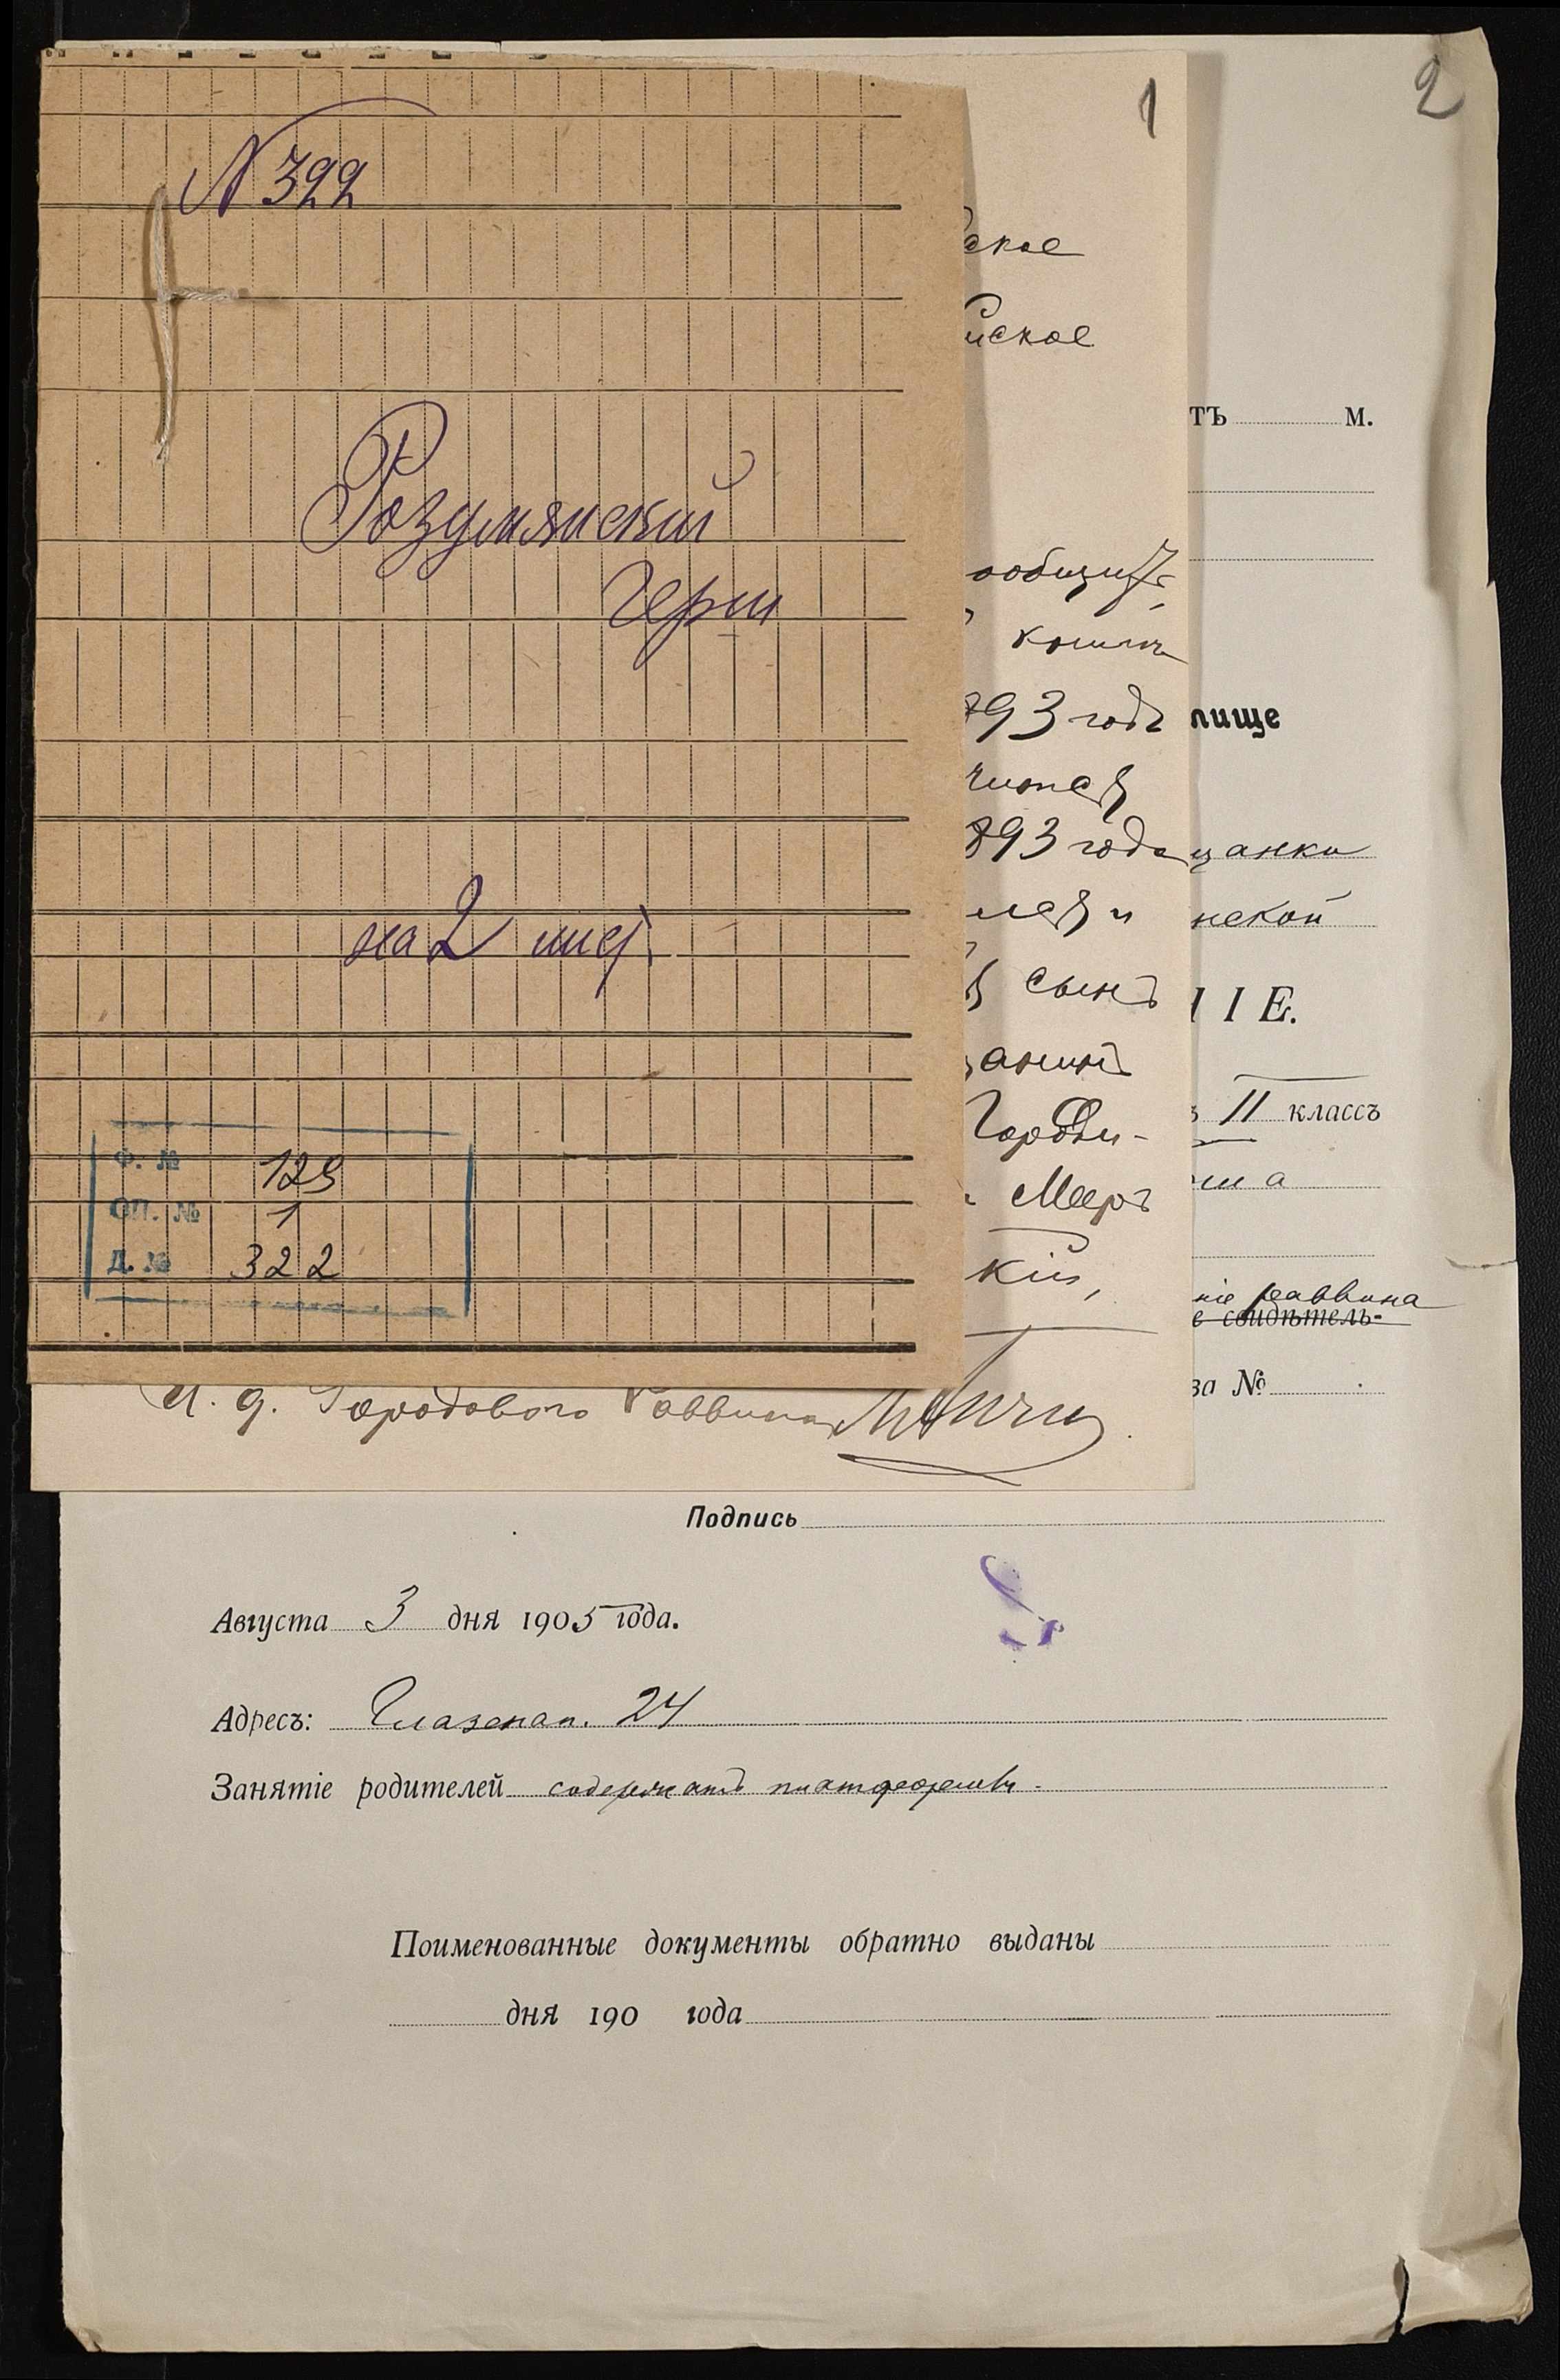 N 322
Розумянский
Герш
на 2 лист.
Ф. № 129
ОП. № 1
Д. № 322
1
ское
ское
сообщить
893 годъ
893 года
сынъ
анинъ
Городи-
Мееръ
кій,
И. д. Городового Раввина
2
тъ М.
лище
цанки
нской
ІЕ.
II классъ
ніе раввина
е свидѣтель-
за №
Подпись
Августа 3 дня 1905 года.
Адресъ: Глазенап. 24
Занятіе родителей содержатъ платформы.
Поименованные документы обратно выданы
дня 190 года